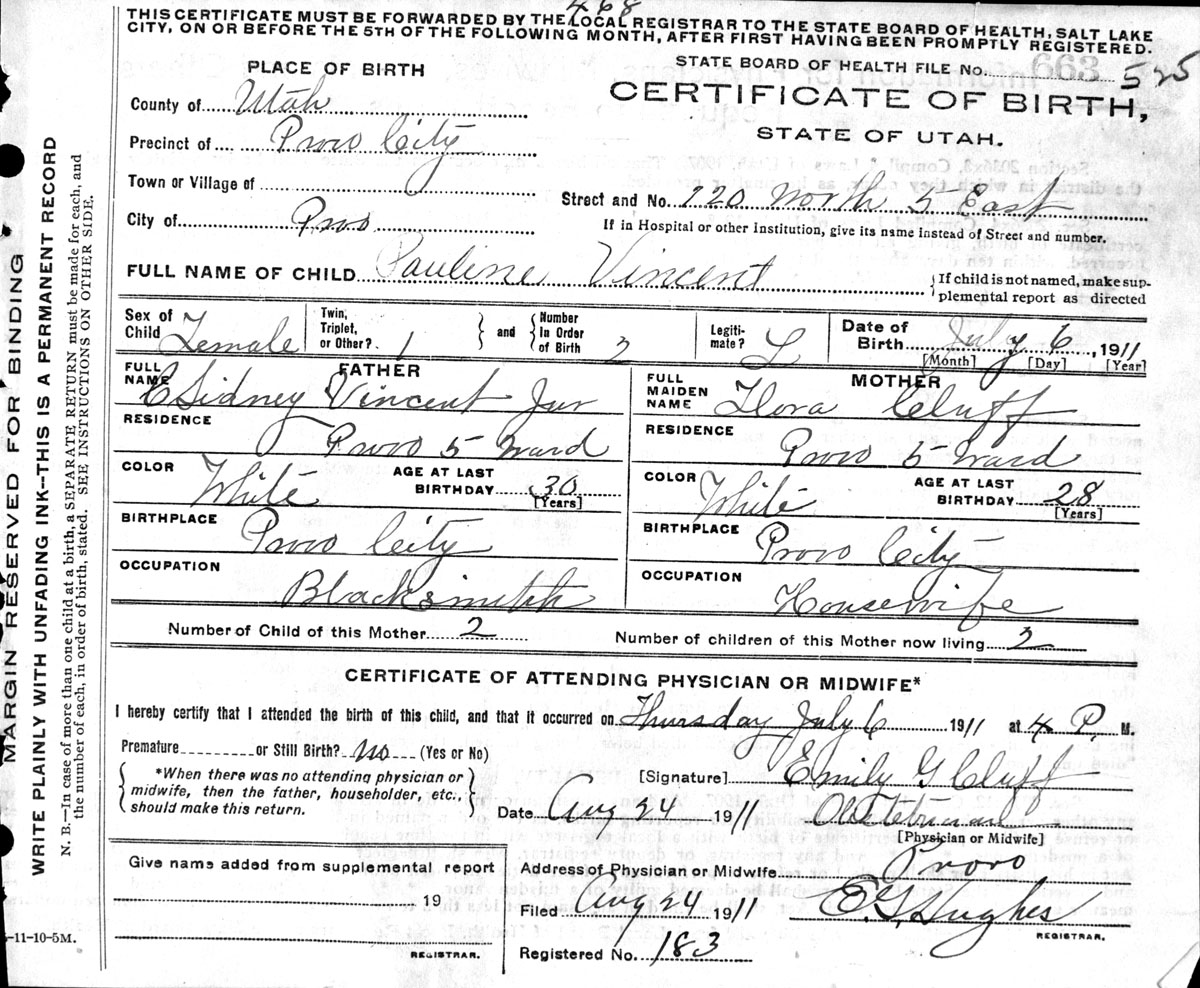 468
THIS CERTIFICATE MUST BE FORWARDED BY THE LOCAL REGISTRAR TO THE STATE BOARD OF HEALTH, SALT LAKE
CITY, ON OR BEFORE THE 5TH OF THE FOLLOWING MONTH, AFTER FIRST HAVING BEEN PROMPTLY REGISTERED.
PLACE OF BIRTH
STATE BOARD OF HEALTH FILE No. 663 525
County of Utah
CERTIFICATE OF BIRTH,
STATE OF UTAH.
Precinct of Provo City
Town or Village of
Street and No. 720 North 5 East
City of Provo
If in Hospital or other Institution, give its name instead of Street and number.
FULL NAME OF CHILD Pauline Vincent
If child is not named, make sup-
plemental report as directed
Sex of Child Female
Twin, Triplet, or Other? 1
and
Number In Order of Birth 2
Legiti-mate? L
Date of Birth July 6, 1911
[Month] [Day] [Year]
FATHER
FULL NAME C Sidney Vincent Jur
RESIDENCE Provo 5 Ward
COLOR White
AGE AT LAST BIRTHDAY 30
[Years]
BIRTHPLACE Provo City
OCCUPATION Blacksmith
MOTHER
FULL MAIDEN NAME Flora Cluff
RESIDENCE Provo 5 Ward
COLOR White
AGE AT LAST BIRTHDAY 28
[Years]
BIRTHPLACE Provo City
OCCUPATION Housewife
Number of Child of this Mother 2
Number of children of this Mother now living 2
CERTIFICATE OF ATTENDING PHYSICIAN OR MIDWIFE*
I hereby certify that I attended the birth of this child, and that it occurred on Thursday July 6 1911 at 4 P. M.
Premature or Still Birth? No (Yes or No)
*When there was no attending physician or
midwife, then the father, householder, etc.,
should make this return.
[Signature] Emily G Cluff
Date Aug 24 1911
[Physician or Midwife]
Give name added from supplemental report
19
REGISTRAR.
Address of Physician or Midwife Provo
Filed Aug 24 1911 E. G. Hughes
REGISTRAR.
Registered No. 183
-11-10-5M.
MARGIN RESERVED FOR BINDING
WRITE PLAINLY WITH UNFADING INK--THIS IS A PERMANENT RECORD
N. B.--In case of more than one child at a birth a SEPARATE RETURN must be made for each, and
the number of each, in order of birth, stated. SEE INSTRUCTIONS ON OTHER SIDE.